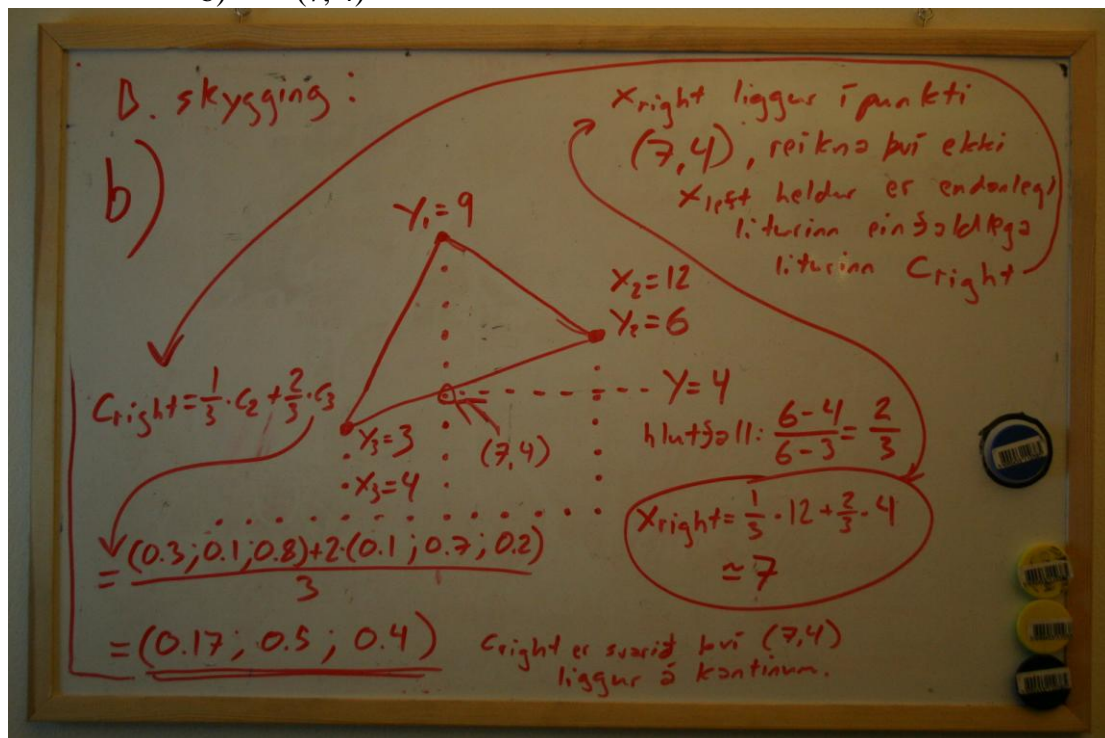 D. skygging:
b)
Xright liggur í punkti
(7,4), reikna því ekki
Xleft heldur er endanlegi
liturinn einfaldlega
liturinn Cright
Y₁=9
X₂=12
Y₂=6
Y=4
Cright=1/3·C₂+2/3·C₃
Y₃=3
X₃=4
(7,4)
hlutfall: 6-4/6-3=2/3
Xright=1/3·12+2/3·4
≃7
=(0.3;0.1;0.8)+2·(0.1;0.7;0.2)/3
=(0.17; 0.5; 0.4)
Cright er svarið því (7,4)
liggur á kantinum.